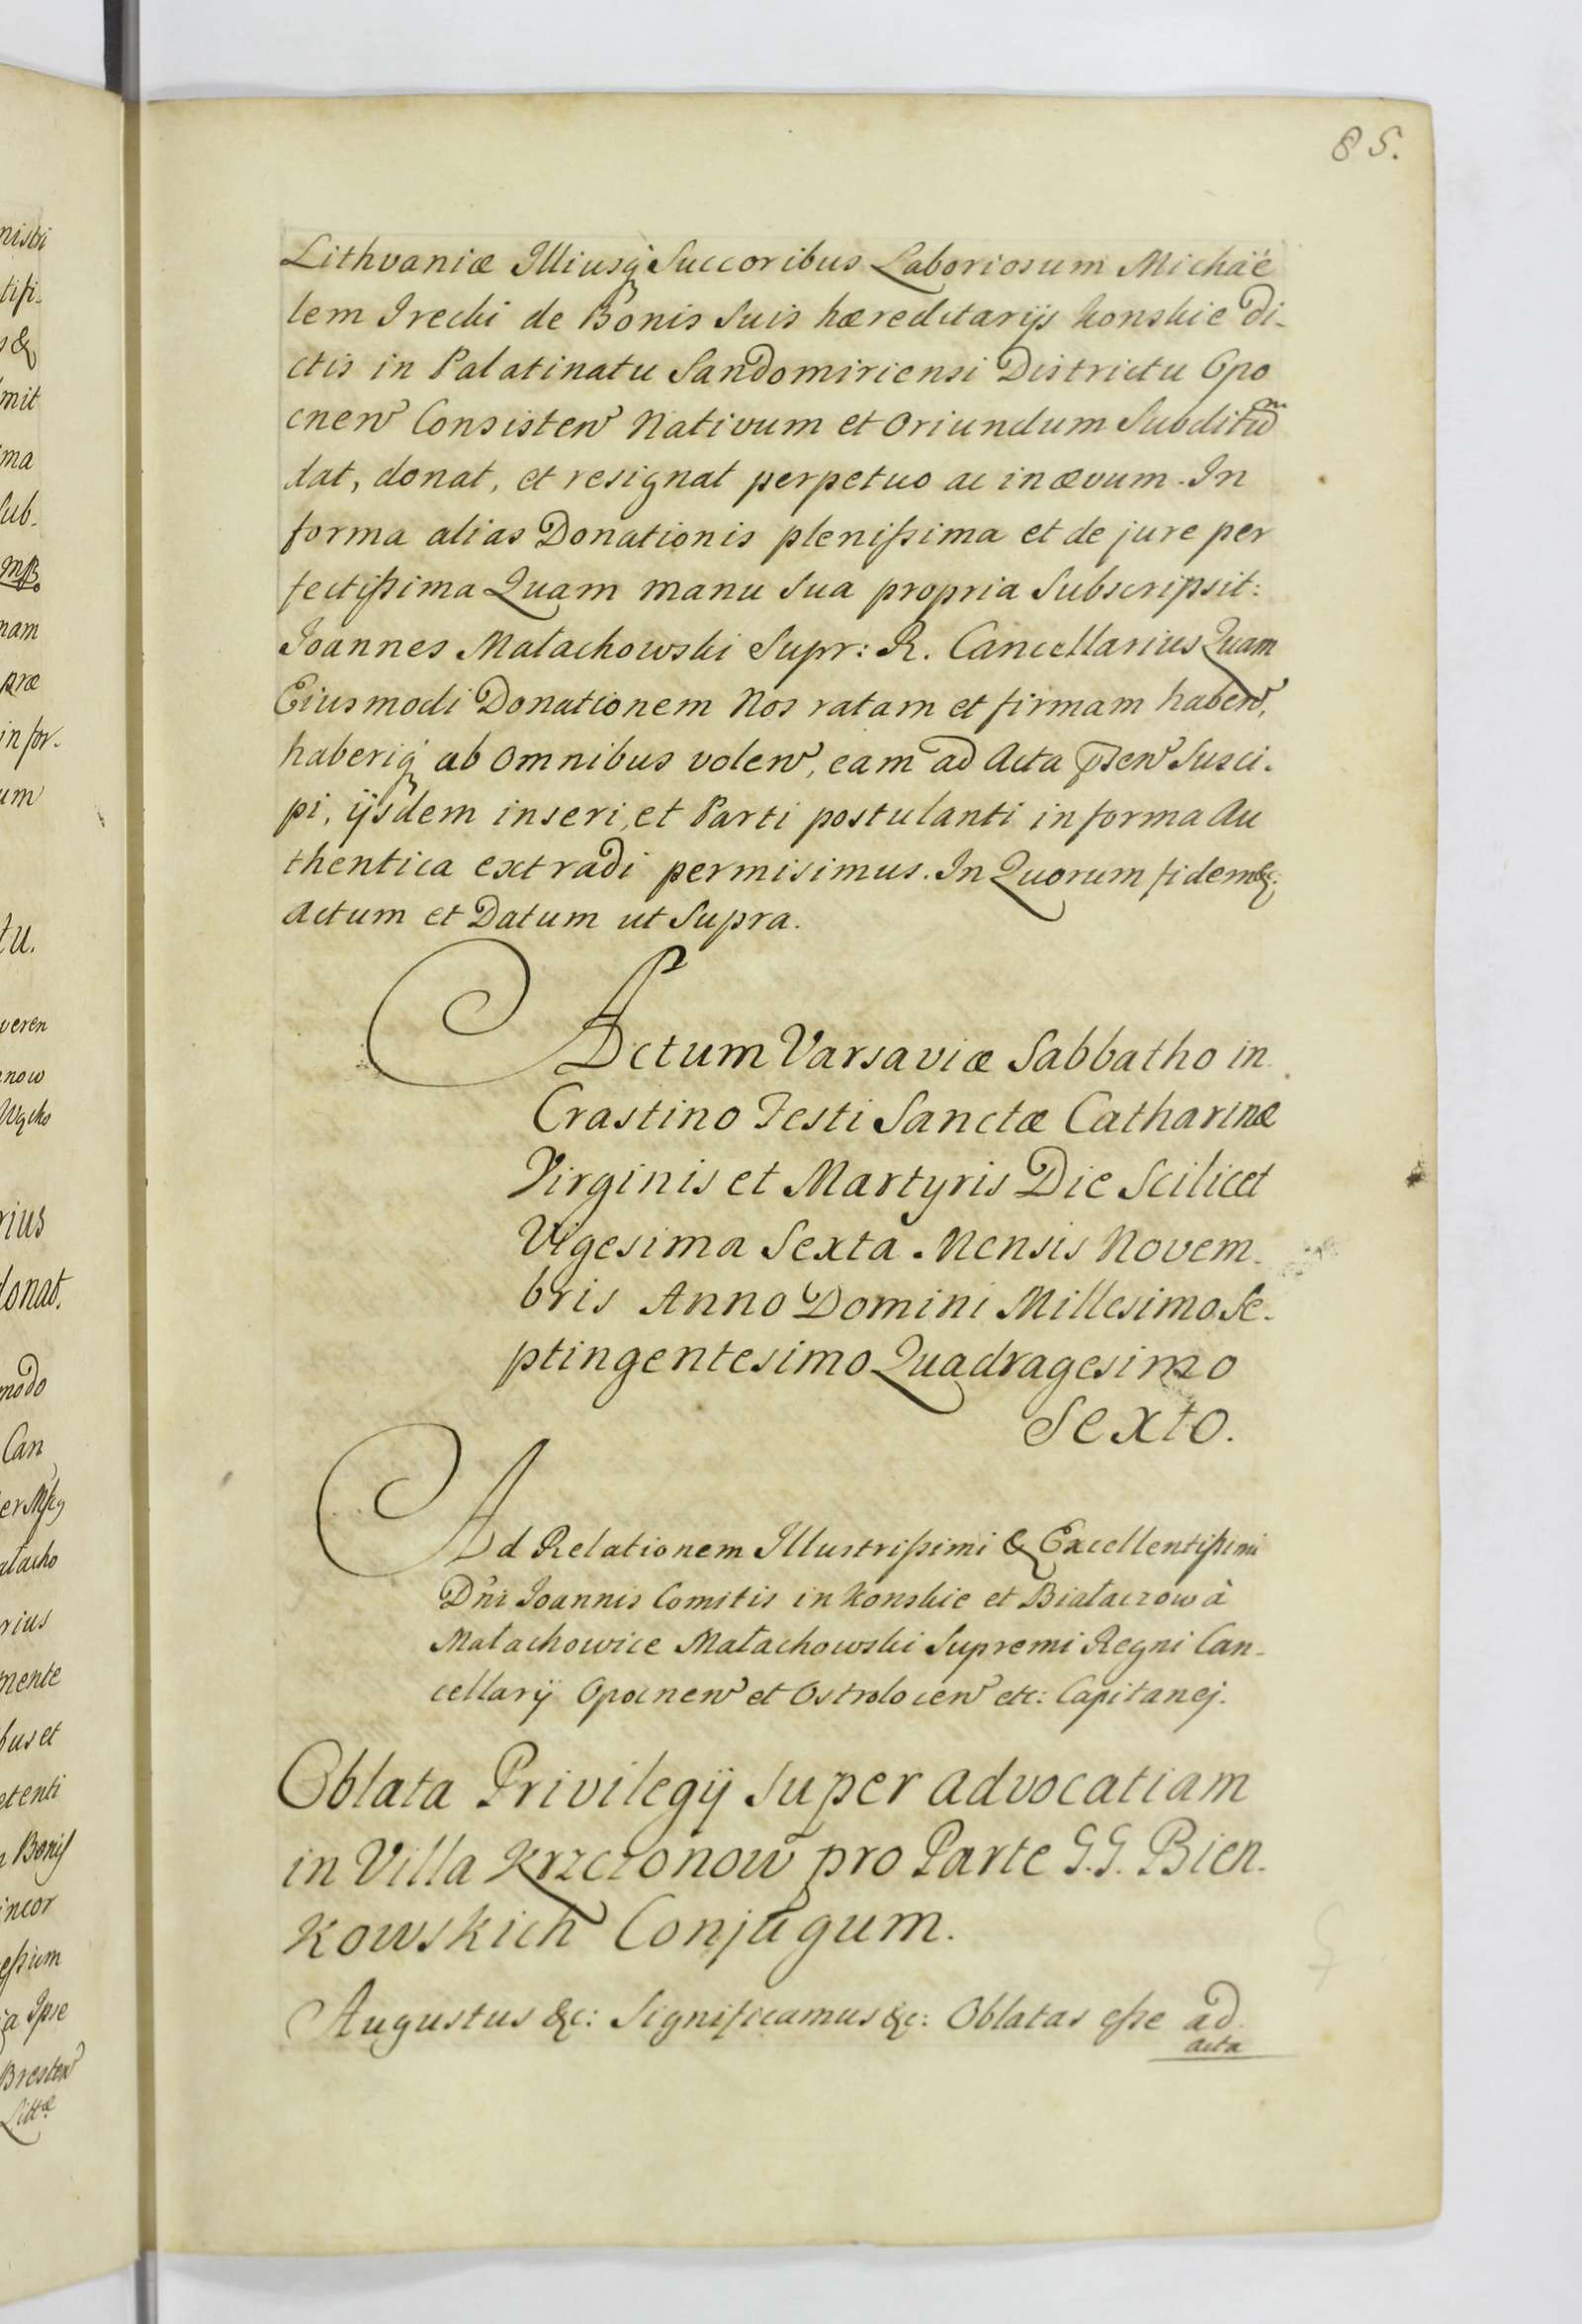 85.
Lithvaniæ Illiusq Succoribus Laboriosum Michäe
lem Irecki de Bonis Suis hæreditarijs Konskie Di-
ctis in Palatinatu Sandomiriensi Districtu Opo
cnen Consisten Nativum et Oriundum Subditum
dat, donat, et resignat perpetuo ac in ævum. In
forma alias Donationis plenissima et de jure per
fectissima Quam manu Sua propria Subscripsit:
Joannes Małachowski Supr: R. Cancellarius Quam
Eiusmodi Donationem Nos ratam et firmam haben,
haberiq ab omnibus volen, eam ad Acta Susci-
pi, ijsdem inseri, et Parti postulanti in forma Au
thentica extradi permisimus. In Quorum fidem &c:
Actum et Datum ut Supra.
Actum Varsaviæ Sabbatho in
Crastino Festi Sanctæ Catharinæ
Virginis et Martyris Die Scilicet
Vigesima Sexta Mensis Novem-
bris Anno Domini Millesimo Se-
ptingentesimo Quadragesimo
Sexto.
Ad Relationem Illustrissimi & Excellentissimi
Dni Joannis Comitis in Konskie et Białaczow à
Małachowice Małachowski Supremi Regni Can-
cellarij Opocnen et Ostrolocen etc: Capitanej.
Oblata Privilegij super advocatiam
in Villa Krzczonow pro Parte G.G. Bien-
kowskich Conjugum.
Augustus &c: Significamus &c: Oblatas esse ad
acta